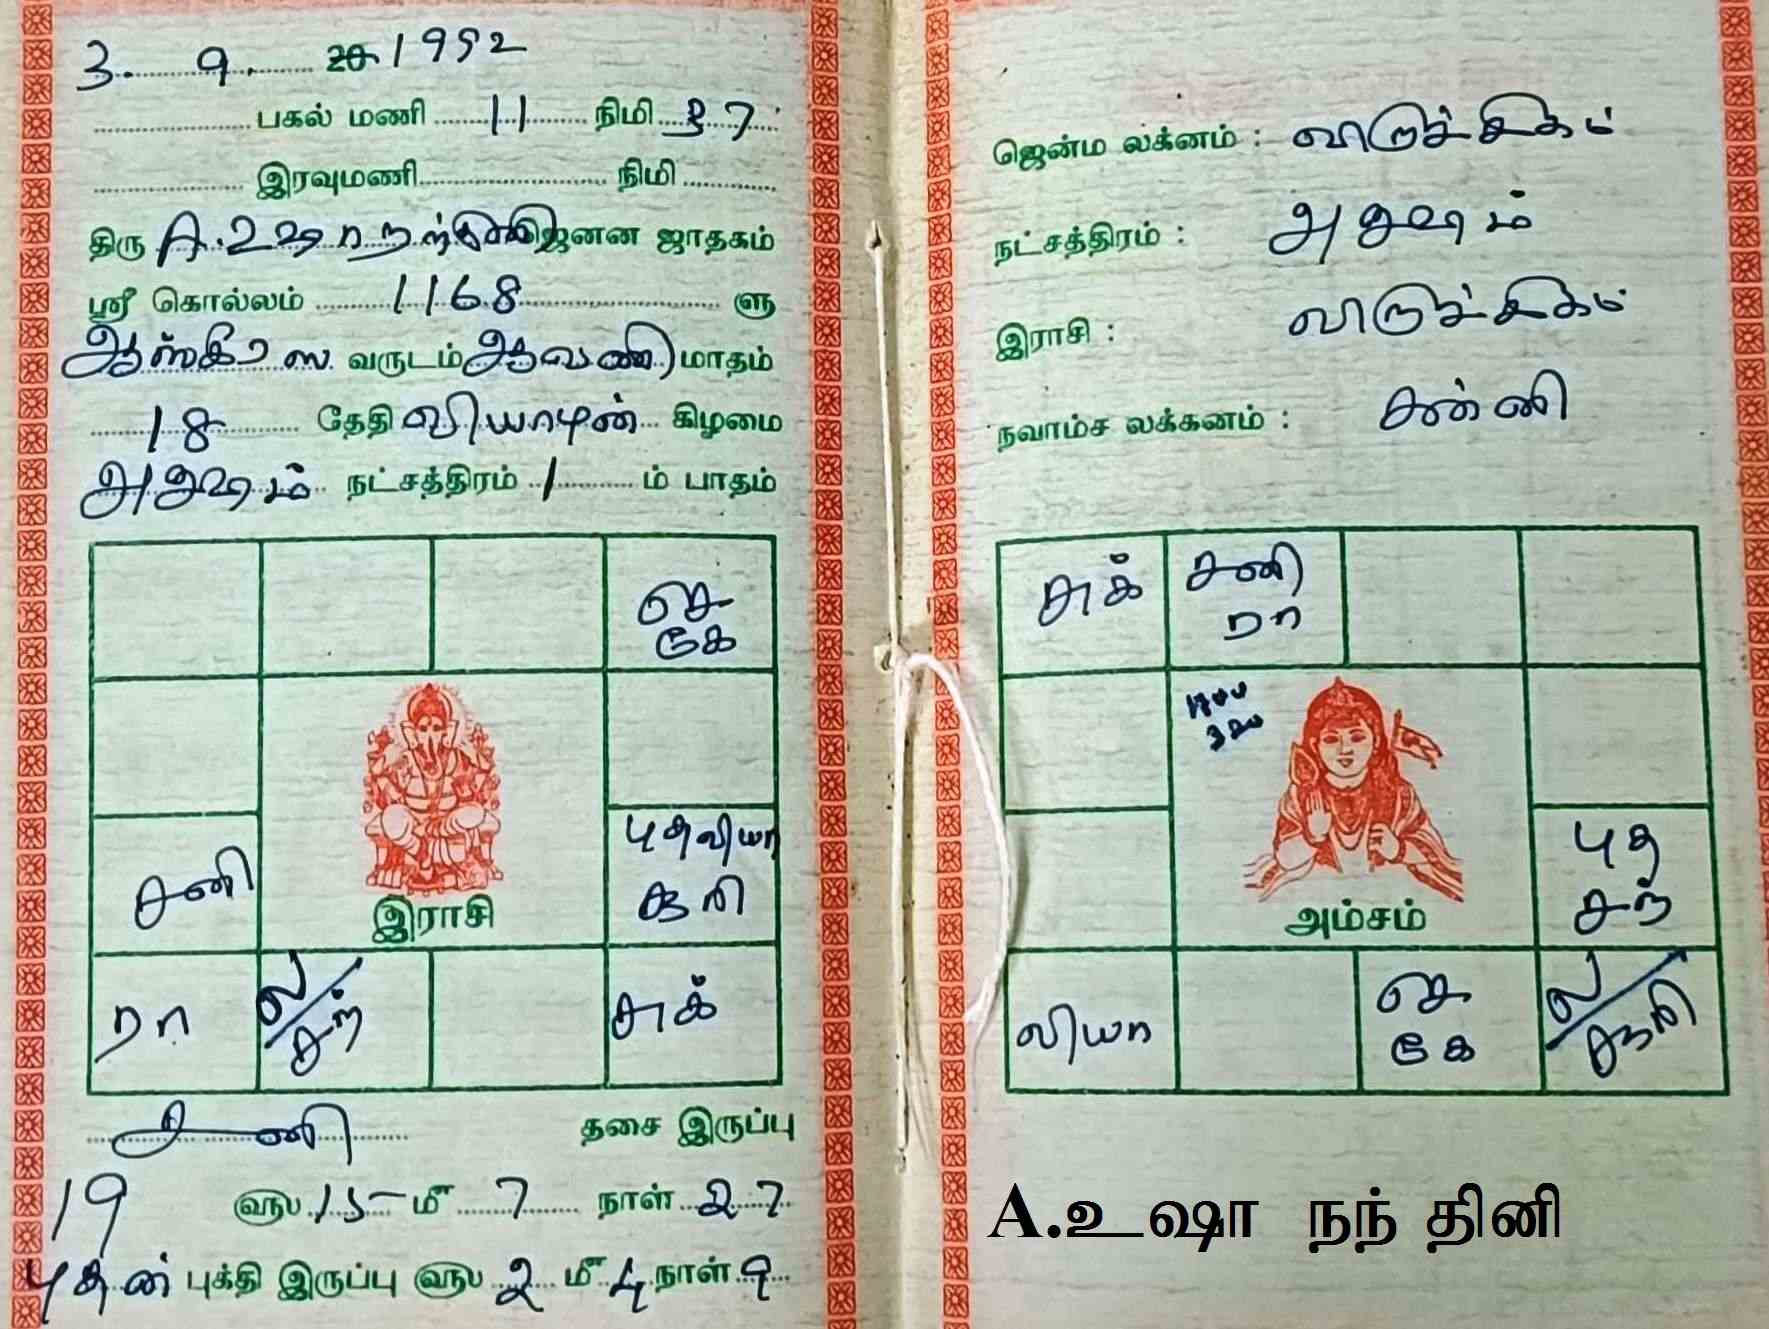 3. 9. 1992
பகல் மணி 11 நிமி 37
இரவுமணி நிமி
திரு A. உஷா நந்தினி ஜெனன ஜாதகம்
ஸ்ரீ கொல்லம் 1168 ளு
ஆங்கீரஸ வருடம் ஆவணி மாதம்
18 தேதி வியாழன் கிழமை
அனுஷம் நட்சத்திரம் 1 ம் பாதம்
செ
கே
சனி
இராசி
புத வியா
சூரி
ரா
ல
சந்
சுக்
சனி தசை இருப்பு
19 வரு 15 மீ 7 நாள் 27
புதன் புக்தி இருப்பு வரு 2 மீ 4 நாள் 9
ஜென்ம லக்னம் : விருச்சிகம்
நட்சத்திரம் : அனுஷம்
இராசி : விருச்சிகம்
நவாம்ச லக்கனம் : கன்னி
சுக்
சனி
ரா
அம்சம்
புத
சந்
வியா
செ
கே
ல
சூரி
A.உஷா நந்தினி